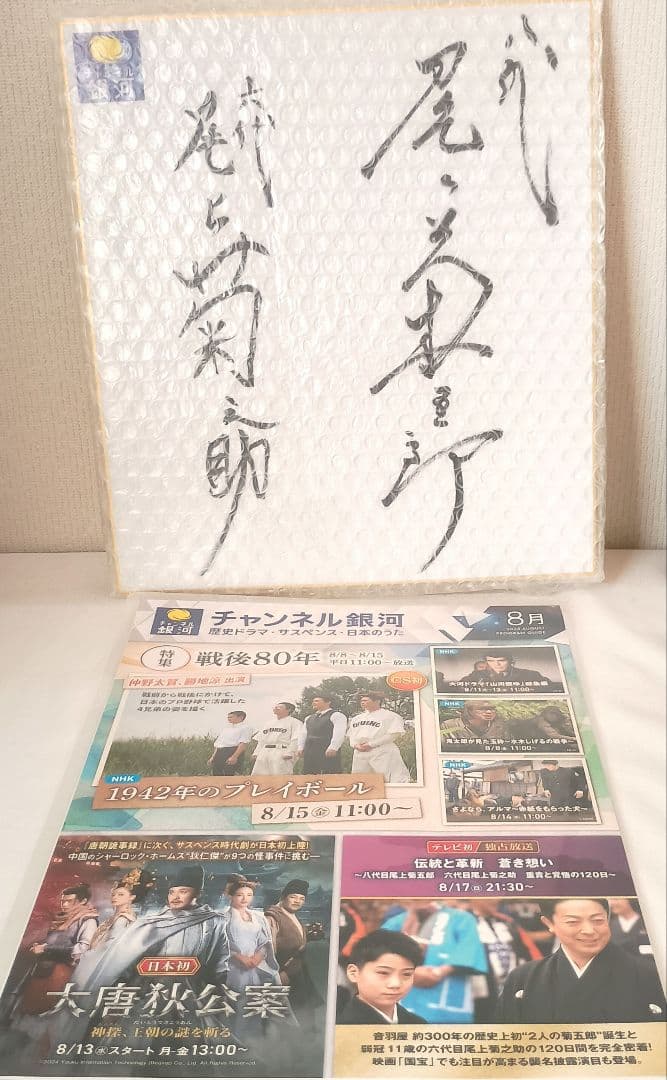 チャンネル
銀河
八代
尾上菊五郎
六代
尾上菊之助
チャンネル
銀河
チャンネル銀河
歴史ドラマ・サスペンス・日本のうた
8月
2025 AUGUST
PROGRAM GUIDE
特集
戦後80年
8/8～8/15
平日11:00～放送
仲野太賀、勝地涼 出演
CS初
戦前から戦後にかけて、
日本のプロ野球で活躍した
4兄弟の姿を描く
NHK
1942年のプレイボール
8/15㊎11:00～
NHK
大河ドラマ「山河燃ゆ」総集編
NHK
鬼太郎が見た玉砕～水木しげるの戦争～
8/8㊎ 11:00～
NHK
さよなら、アルマ～赤紙をもらった犬～
8/14㊍ 11:00～
「唐朝詭事録」に次ぐ、サスペンス時代劇が日本初上陸!
中国のシャーロック・ホームズ“狄仁傑”が9つの怪事件に挑む―
日本初
大唐狄公案
だいとうてきこうあん
神探、王朝の謎を斬る
8/13㊌スタート 月-金13:00～
©2024 Youku Information Technology (Beijing) Co., Ltd. All Rights Reserved.
テレビ初 独占放送
伝統と革新 蒼き想い
～八代目尾上菊五郎 六代目尾上菊之助 重責と覚悟の120日～
8/17㊐ 21:30～
音羽屋 約300年の歴史上初“2人の菊五郎”誕生と
弱冠11歳の六代目尾上菊之助の120日間を完全密着!
映画「国宝」でも注目が高まる襲名披露演目も登場。